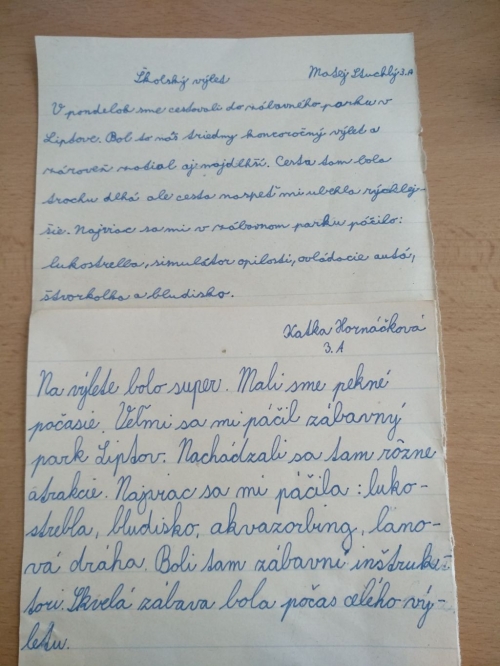 Školský výlet
Matej Stuchlý 3.A
V pondelok sme cestovali do zábavného parku v
Liptove. Bol to náš triedny koncoročný výlet a
zároveň zatial aj najdlhší. Cesta tam bola
trochu dlhá ale cesta naspeť mi ubehla rýchlej-
šie. Najviac sa mi v zábavnom parku páčilo:
lukostrelba, simulátor opilosti, ovládacie autá,
štvorkolka a bludisko.
Katka Hornáčková
3. A
Na výlete bolo super. Mali sme pekné
počasie. Veľmi sa mi páčil zábavný
park Liptov. Nachádzali sa tam rôzne
atrakcie. Najviac sa mi páčila: luko-
strelba, bludisko, akvazorbing, lano-
vá dráha. Boli tam zábavní inštruk-
tori. Skvelá zábava bola počas celého vý-
letu.